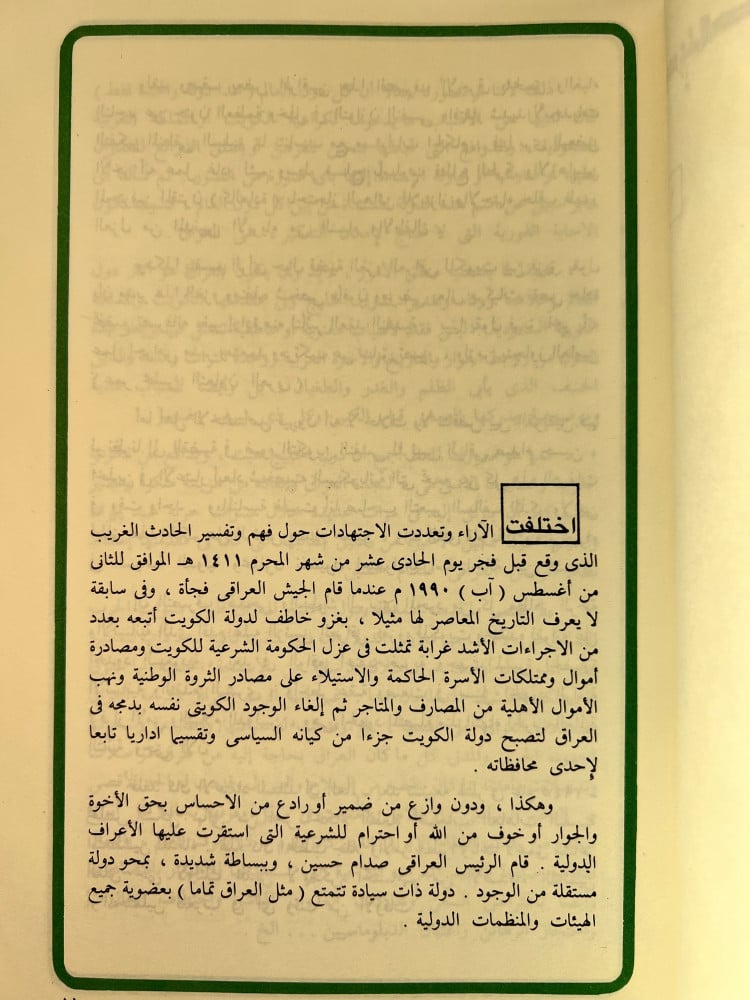 اختلفت الآراء وتعددت الاجتهادات حول فهم وتفسير الحادث الغريب
الذى وقع قبل فجر يوم الحادى عشر من شهر المحرم ١٤١١ هـ الموافق للثانى
من أغسطس ( آب ) ١٩٩٠ م عندما قام الجيش العراقى فجأة ، وفى سابقة
لا يعرف التاريخ المعاصر لها مثيلا ، بغزو خاطف لدولة الكويت أتبعه بعدد
من الاجراءات الأشد غرابة تمثلت فى عزل الحكومة الشرعية للكويت ومصادرة
أموال وممتلكات الأسرة الحاكمة والاستيلاء على مصادر الثروة الوطنية ونهب
الأموال الأهلية من المصارف والمتاجر ثم إلغاء الوجود الكويتى نفسه بدمجه فى
العراق لتصبح دولة الكويت جزءا من كيانه السياسى وتقسيما اداريا تابعا
لإحدى محافظاته .
وهكذا ، ودون وازع من ضمير أو رادع من الاحساس بحق الأخوة
والجوار أو خوف من الله أو احترام للشرعية التى استقرت عليها الأعراف
الدولية . قام الرئيس العراقى صدام حسين ، وببساطة شديدة ، بمحو دولة
مستقلة من الوجود . دولة ذات سيادة تتمتع ( مثل العراق تماما ) بعضوية جميع
الهيئات والمنظمات الدولية .